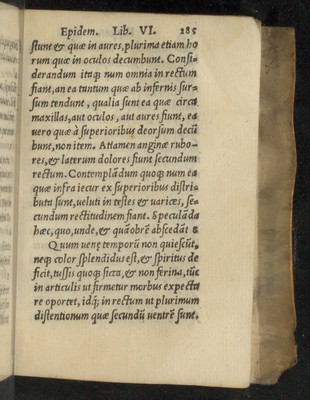 Epidem. Lib. VI. 285
stunt & quæ in aures, plurima etiam ho
rum quæ in oculos decumbunt. Consi-
derandum itaq; num omnia in rectum
fiant, an ea tantum quæ ab infernis sur-
sum tendunt, qualia sunt ea quæ circa
maxillas, aut oculos, aut aures fiunt, ea
uero quæ à superioribus deorsum decũ
bunt, non item. Attamen anginæ rubo-
res, & laterum dolores fiunt secundum
rectum. Contemplãdum quoq; num ea
quæ infra iecur ex superioribus distri-
buta sunt, ueluti in testes & uarices, se-
cundum rectitudinem fiant. Speculãda
hæc, quo, unde, & quãobrẽ abscedãt
Quum uenę temporũ non quiescũt,
neq; color splendidus est, & spiritus de
ficit, tussis quoq; sicca, & non ferina, tũc
in articulis ut firmetur morbus expecta
re oportet, idq; in rectum ut plurimum
distentionum quæ secundũ uentrẽ sunt.